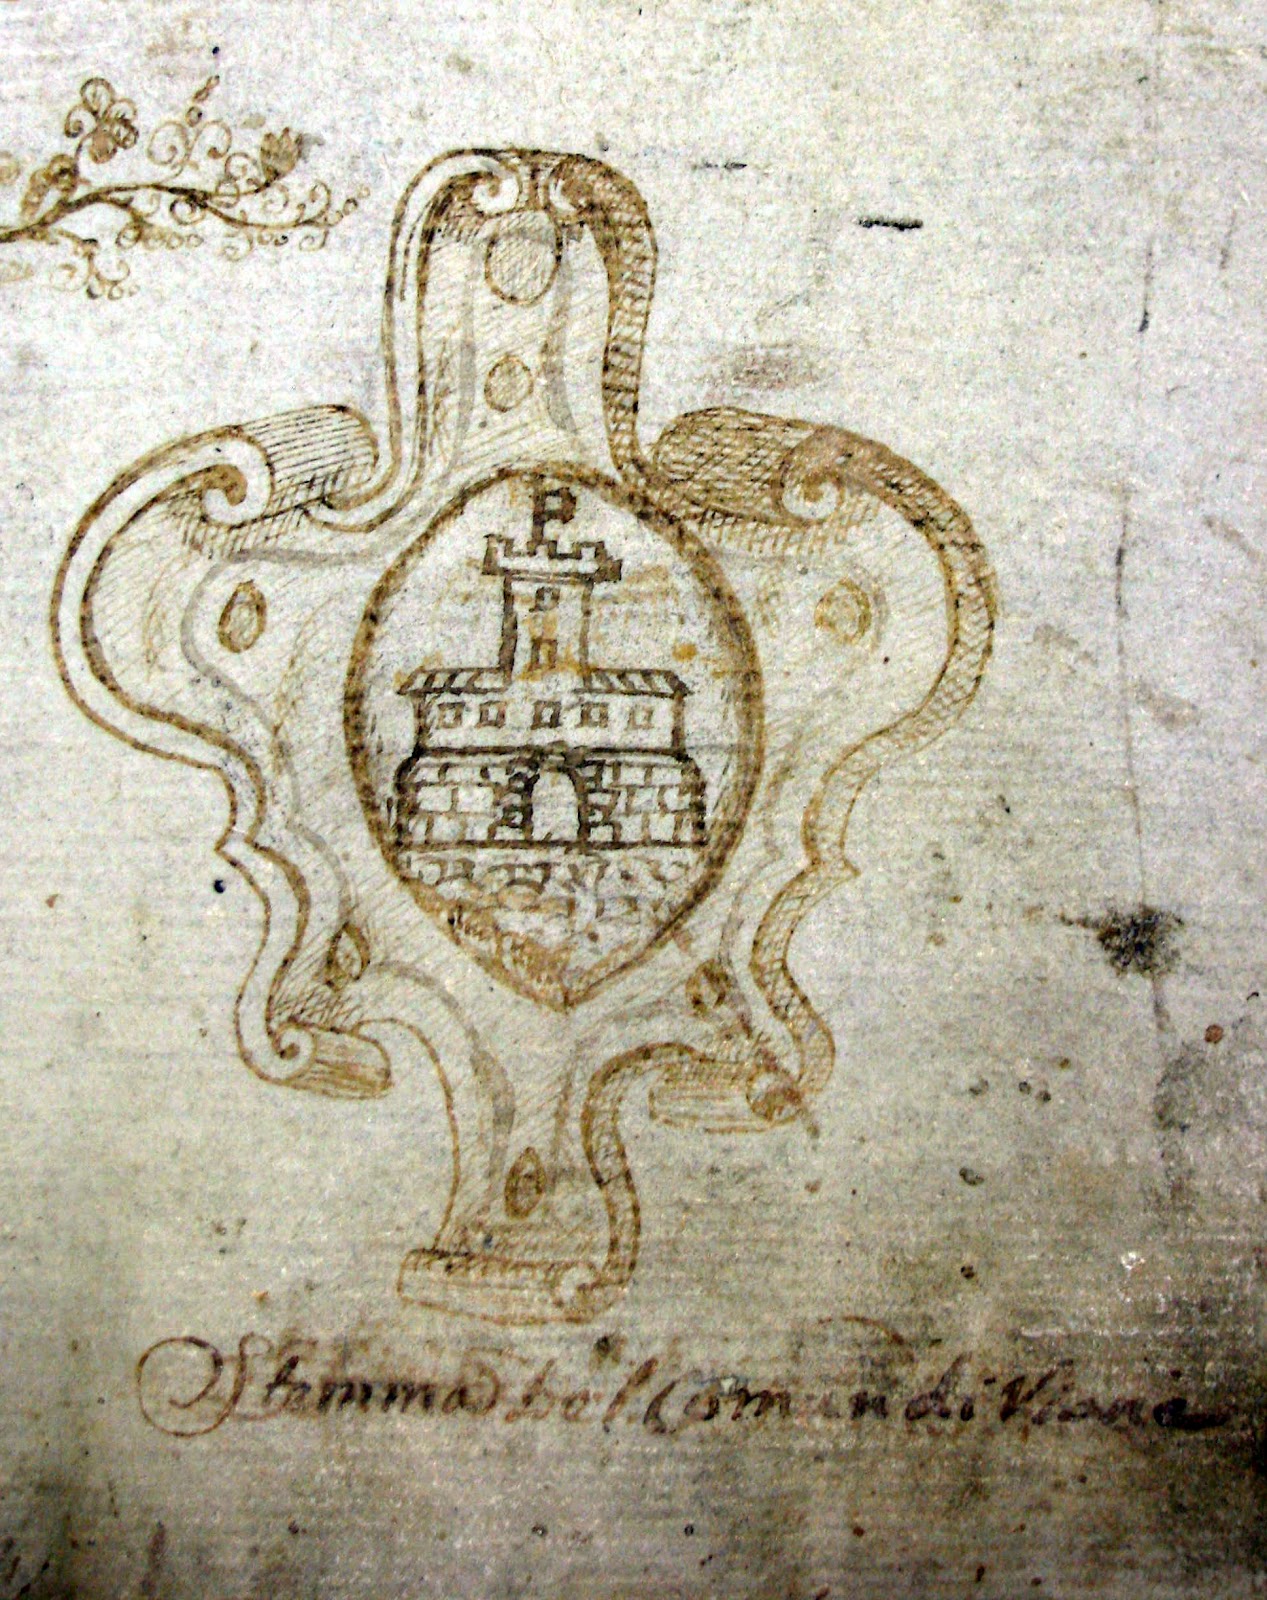 P
Stemma del Comun di